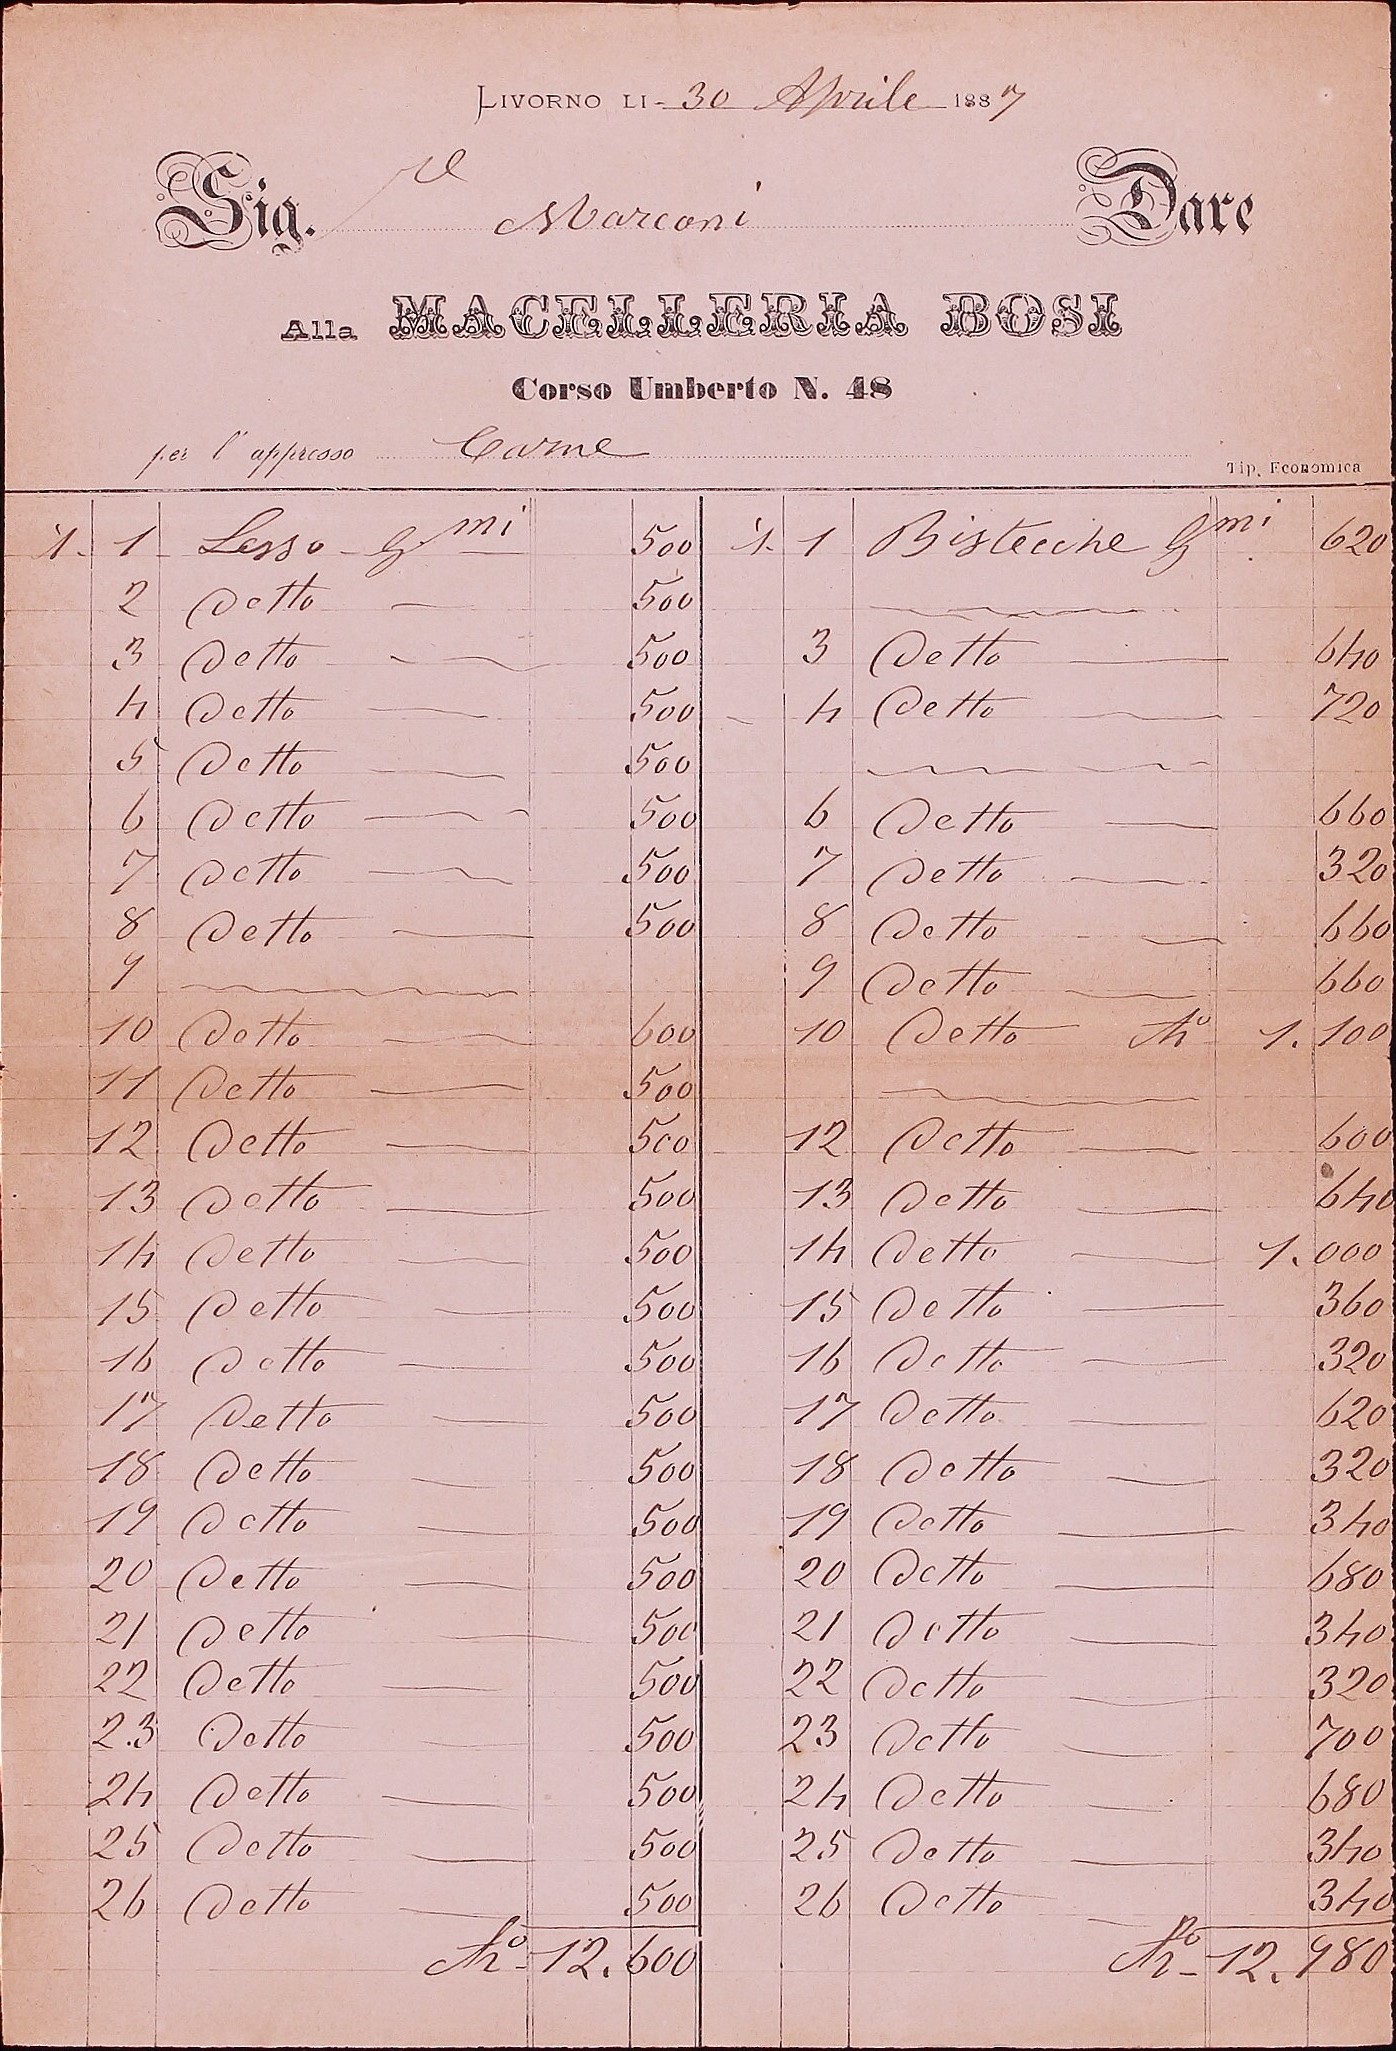 LIVORNO LI 30 Aprile 1887
Sig.re Marconi Dare
Alla MACELLERIA BOSI
Corso Umberto N. 48
per l'appresso Carne
Tip. Economica
1 Lesso Gmi 500 1 Bistecche Gmi 620
2 Detto 500
3 Detto 500 3 Detto 640
4 Detto 500 4 Detto 720
5 Detto 500
6 Detto 500 6 Detto 660
7 Detto 500 7 Detto 320
8 Detto 500 8 Detto 660
9 9 Detto 660
10 Detto 600 10 Detto Ko 1.100
11 Detto 500
12 Detto 500 12 Detto 600
13 Detto 500 13 Detto 640
14 Detto 500 14 Detto 1.000
15 Detto 500 15 Detto 360
16 Detto 500 16 Detto 320
17 Detto 500 17 Detto 620
18 Detto 500 18 Detto 320
19 Detto 500 19 Detto 340
20 Detto 500 20 Detto 680
21 Detto 500 21 Detto 340
22 Detto 500 22 Detto 320
23 Detto 500 23 Detto 700
24 Detto 500 24 Detto 680
25 Detto 500 25 Detto 340
26 Detto 500 26 Detto 340
Ko 12.600 Ko 12.980